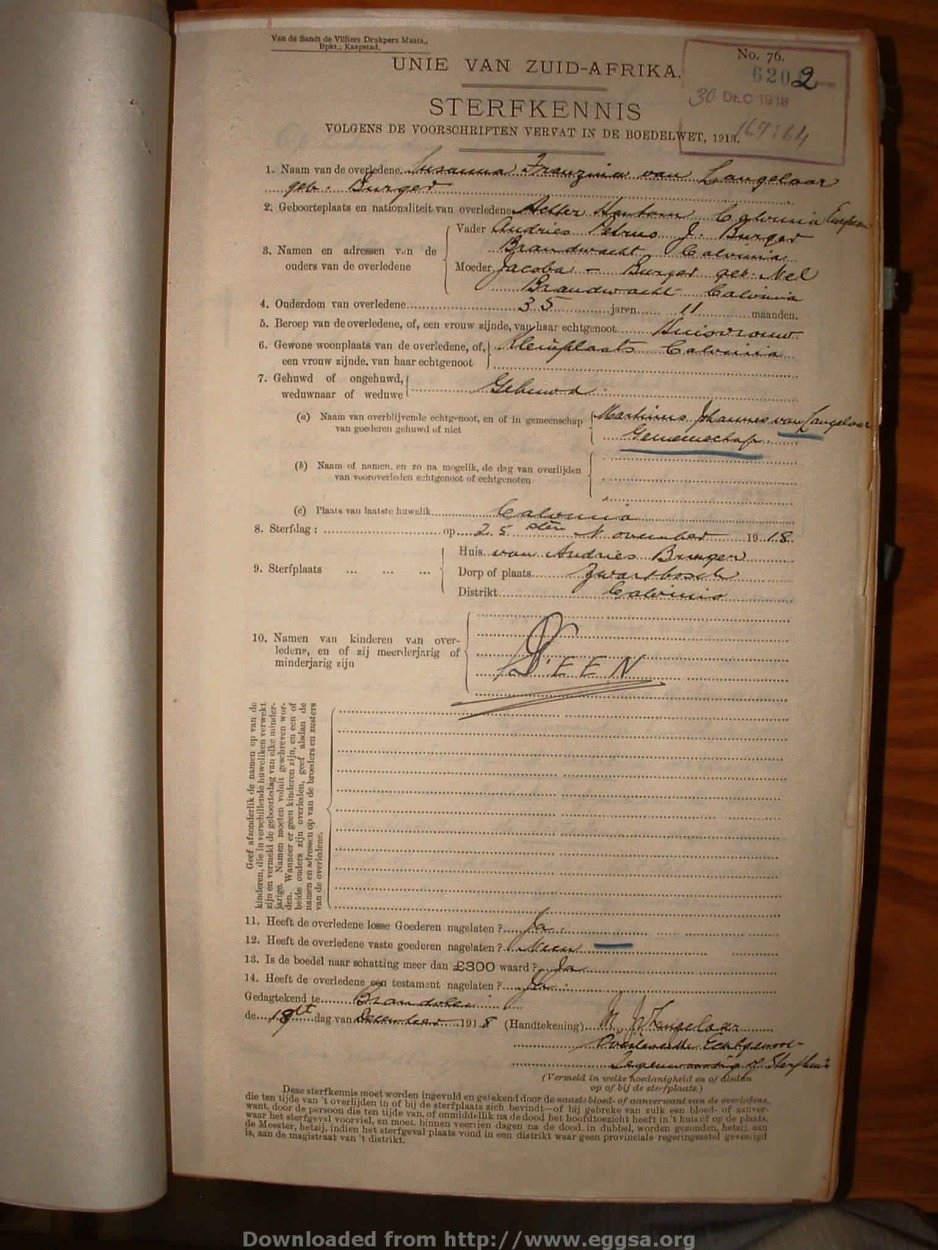 Van de Sandt de Villiers Drukpers Maats.,
Bpkt., Kaapstad.
No. 76.
UNIE VAN ZUID-AFRIKA.
6202
30 DEC 1918
STERFKENNIS
VOLGENS DE VOORSCHRIFTEN VERVAT IN DE BOEDELWET, 1913.
1. Naam van de overledene Susanna Franzina van Langelaar
geb. Burger
2. Geboorteplaats en nationaliteit van overledene Achter Hantam Calvinia
3. Namen en adressen van de ouders van de overledene
Vader Andries Petrus J. Burger
Brandwacht Calvinia
Moeder Jacoba - Burger geb. Nel
Brandwacht Calvinia
4. Ouderdom van overledene 35 jaren 11 maanden.
5. Beroep van de overledene, of, een vrouw zijnde, van haar echtgenoot Huisvrouw
6. Gewone woonplaats van de overledene, of, een vrouw zijnde, van haar echtgenoot Kleinplaats Calvinia
7. Gehuwd of ongehuwd, weduwnaar of weduwe Gehuwd
(a) Naam van overblijvende echtgenoot, en of in gemeenschap van goederen gehuwd of niet Marthinus Johannes van Langelaar
Gemeenschap
(b) Naam of namen, en zo na mogelik, de dag van overlijden van vooroverleden echtgenoot of echtgenoten
(c) Plaats van laatste huwelik Calvinia
8. Sterfdag : op 25sten November 1918
9. Sterfplaats ... ... ...
Huis van Andries Burger
Dorp of plaats Zwartbosch
Distrikt Calvinia
10. Namen van kinderen van overledene, en of zij meerderjarig of minderjarig zijn
GEEN
Geef afzonderlik de namen op van de
kinderen, die in verschillende huweliken verwekt
zijn en vermeld de geboortedag van elke minder-
jarige. Namen moeten voluit geschreven wor-
den. Wanneer er geen kinderen zijn, en een of
beide ouders zijn overleden, geef alsdan de
namen en adressen op van de broeders en zusters
van de overledene.
11. Heeft de overledene losse Goederen nagelaten ? Ja.
12. Heeft de overledene vaste goederen nagelaten ? Neen
13. Is de boedel naar schatting meer dan £300 waard ? Ja
14. Heeft de overledene een testament nagelaten ? Ja.
Gedagtekend te Brandvlei
de 18de dag van December 1918 (Handtekening) M. J. v Langelaar
Overlevende Echtgenoot
Tegenwoordig by Sterfhuis
(Vermeld in welke hoedanigheid en of dadelik
op of bij de sterfplaats.)
Deze sterfkennis moet worden ingevuld en getekend door de naaste bloed- of aanverwant van de overledene,
die ten tijde van 't overlijden in of bij de sterfplaats zich bevindt—of bij gebreke van zulk een bloed- of aanver-
want, door de persoon die ten tijde van, of onmiddellik na de dood het hoofdtoezicht heeft in 't huis of op de plaats,
waar het sterfgeval voorviel, en moet, binnen veertien dagen na de dood, in dubbel, worden gezonden, hetzij, aan
de Meester, hetzij, indien het sterfgeval plaats vond in een distrikt waar geen provinciale regeringszetel gevestigd
is, aan de magistraat van 't distrikt.
Downloaded from http://www.eggsa.org